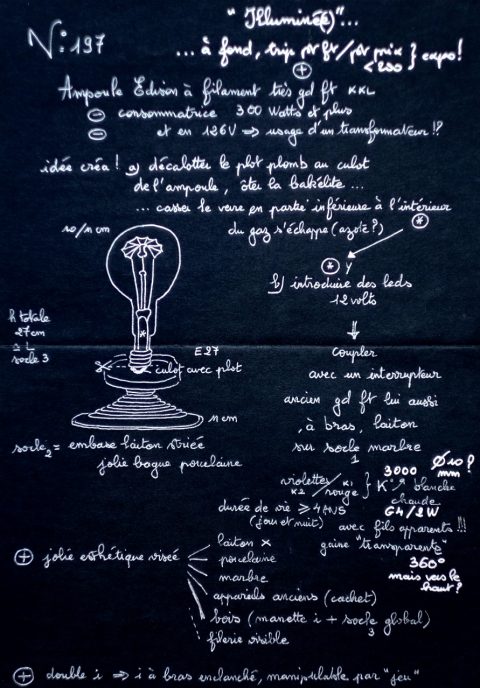 N: 197
" Illuminé(e) "...
... à fond, trip pt ft/pt prix } expo!
<200
+
Ampoule Edison à filament très gd ft KKL
- consommatrice 300 Watts et plus
- et en 126V ⇒ usage d'un transformateur!?
idée créa! a) décalotter le plot plomb au culot
de l'ampoule, ôter la bakélite ...
... casser le verre en partie inférieure à l'intérieur
du gaz s'échappe (azote?) *
* y
b) introduire des leds
12 volts
⇓
coupler
avec un interrupteur
ancien gd ft lui aussi
, à bras, laiton
sur socle marbre
1
10/11 cm
h totale
27cm
≥ L
socle 3
*
E27
culot avec plot
11 cm
socle 2 = embase laiton striée
jolie bague porcelaine
violettes/K1 } K° blanche
K2 / rouge
3000 Ø10?
mm
chaude
durée de vie ≥ 4 ANS G4/2W
(jour et nuit) avec fils apparents!!!
gaine "transparente"
360°
mais vers le
haut?
+ jolie esthétique visée
laiton x
porcelaine
marbre
appareils anciens (cachet)
bois (manette i + socle global)
3
filerie visible
+ double i ⇒ i à bras enclanché, manipulable par "jeu"